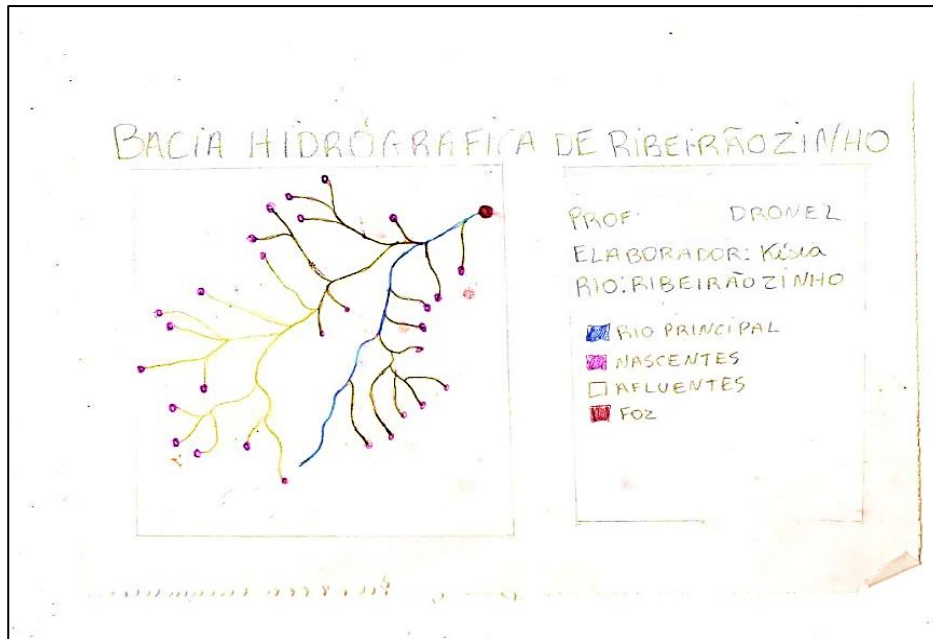 BACIA HIDRÓGRAFICA DE RIBEIRÃOZINHO
PROF. DRONEZ
ELABORADOR: Késia
RIO: RIBEIRÃOZINHO
RIO PRINCIPAL
NASCENTES
AFLUENTES
FOZ